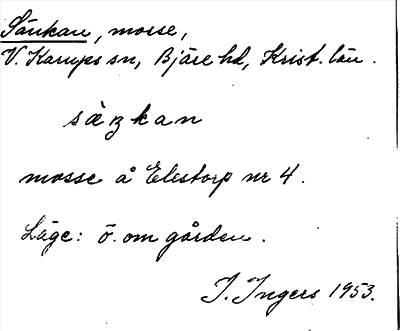 Sänkan, mosse,
V. Karups sn, Bjäre hd, Krist. län.
sàŋkan
mosse å Elestorp nr 4.
Läge: ö. om gården.
I. Ingers 1953.